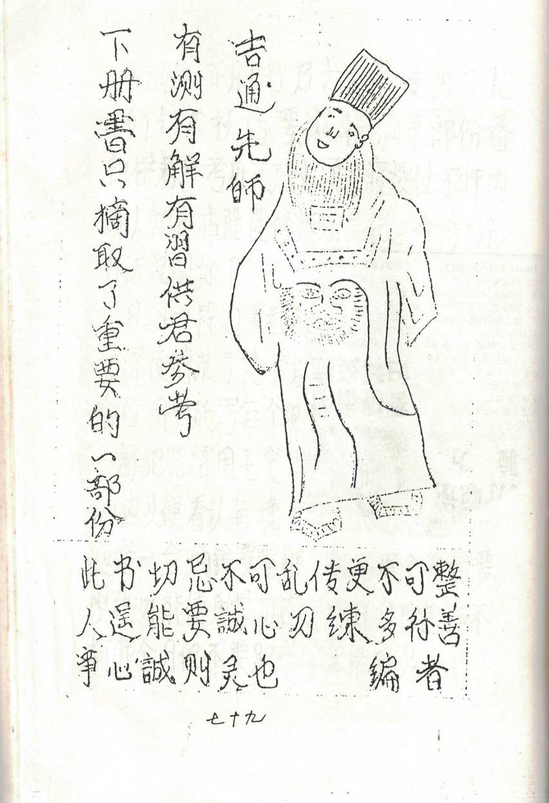 吉通先師
有测有解有習供君参考
下册書只摘取了重要的一部份
此书切忌不可乱传更不可整
人逞能要誠心习練多行善
事心誠则灵也 編者
七十九